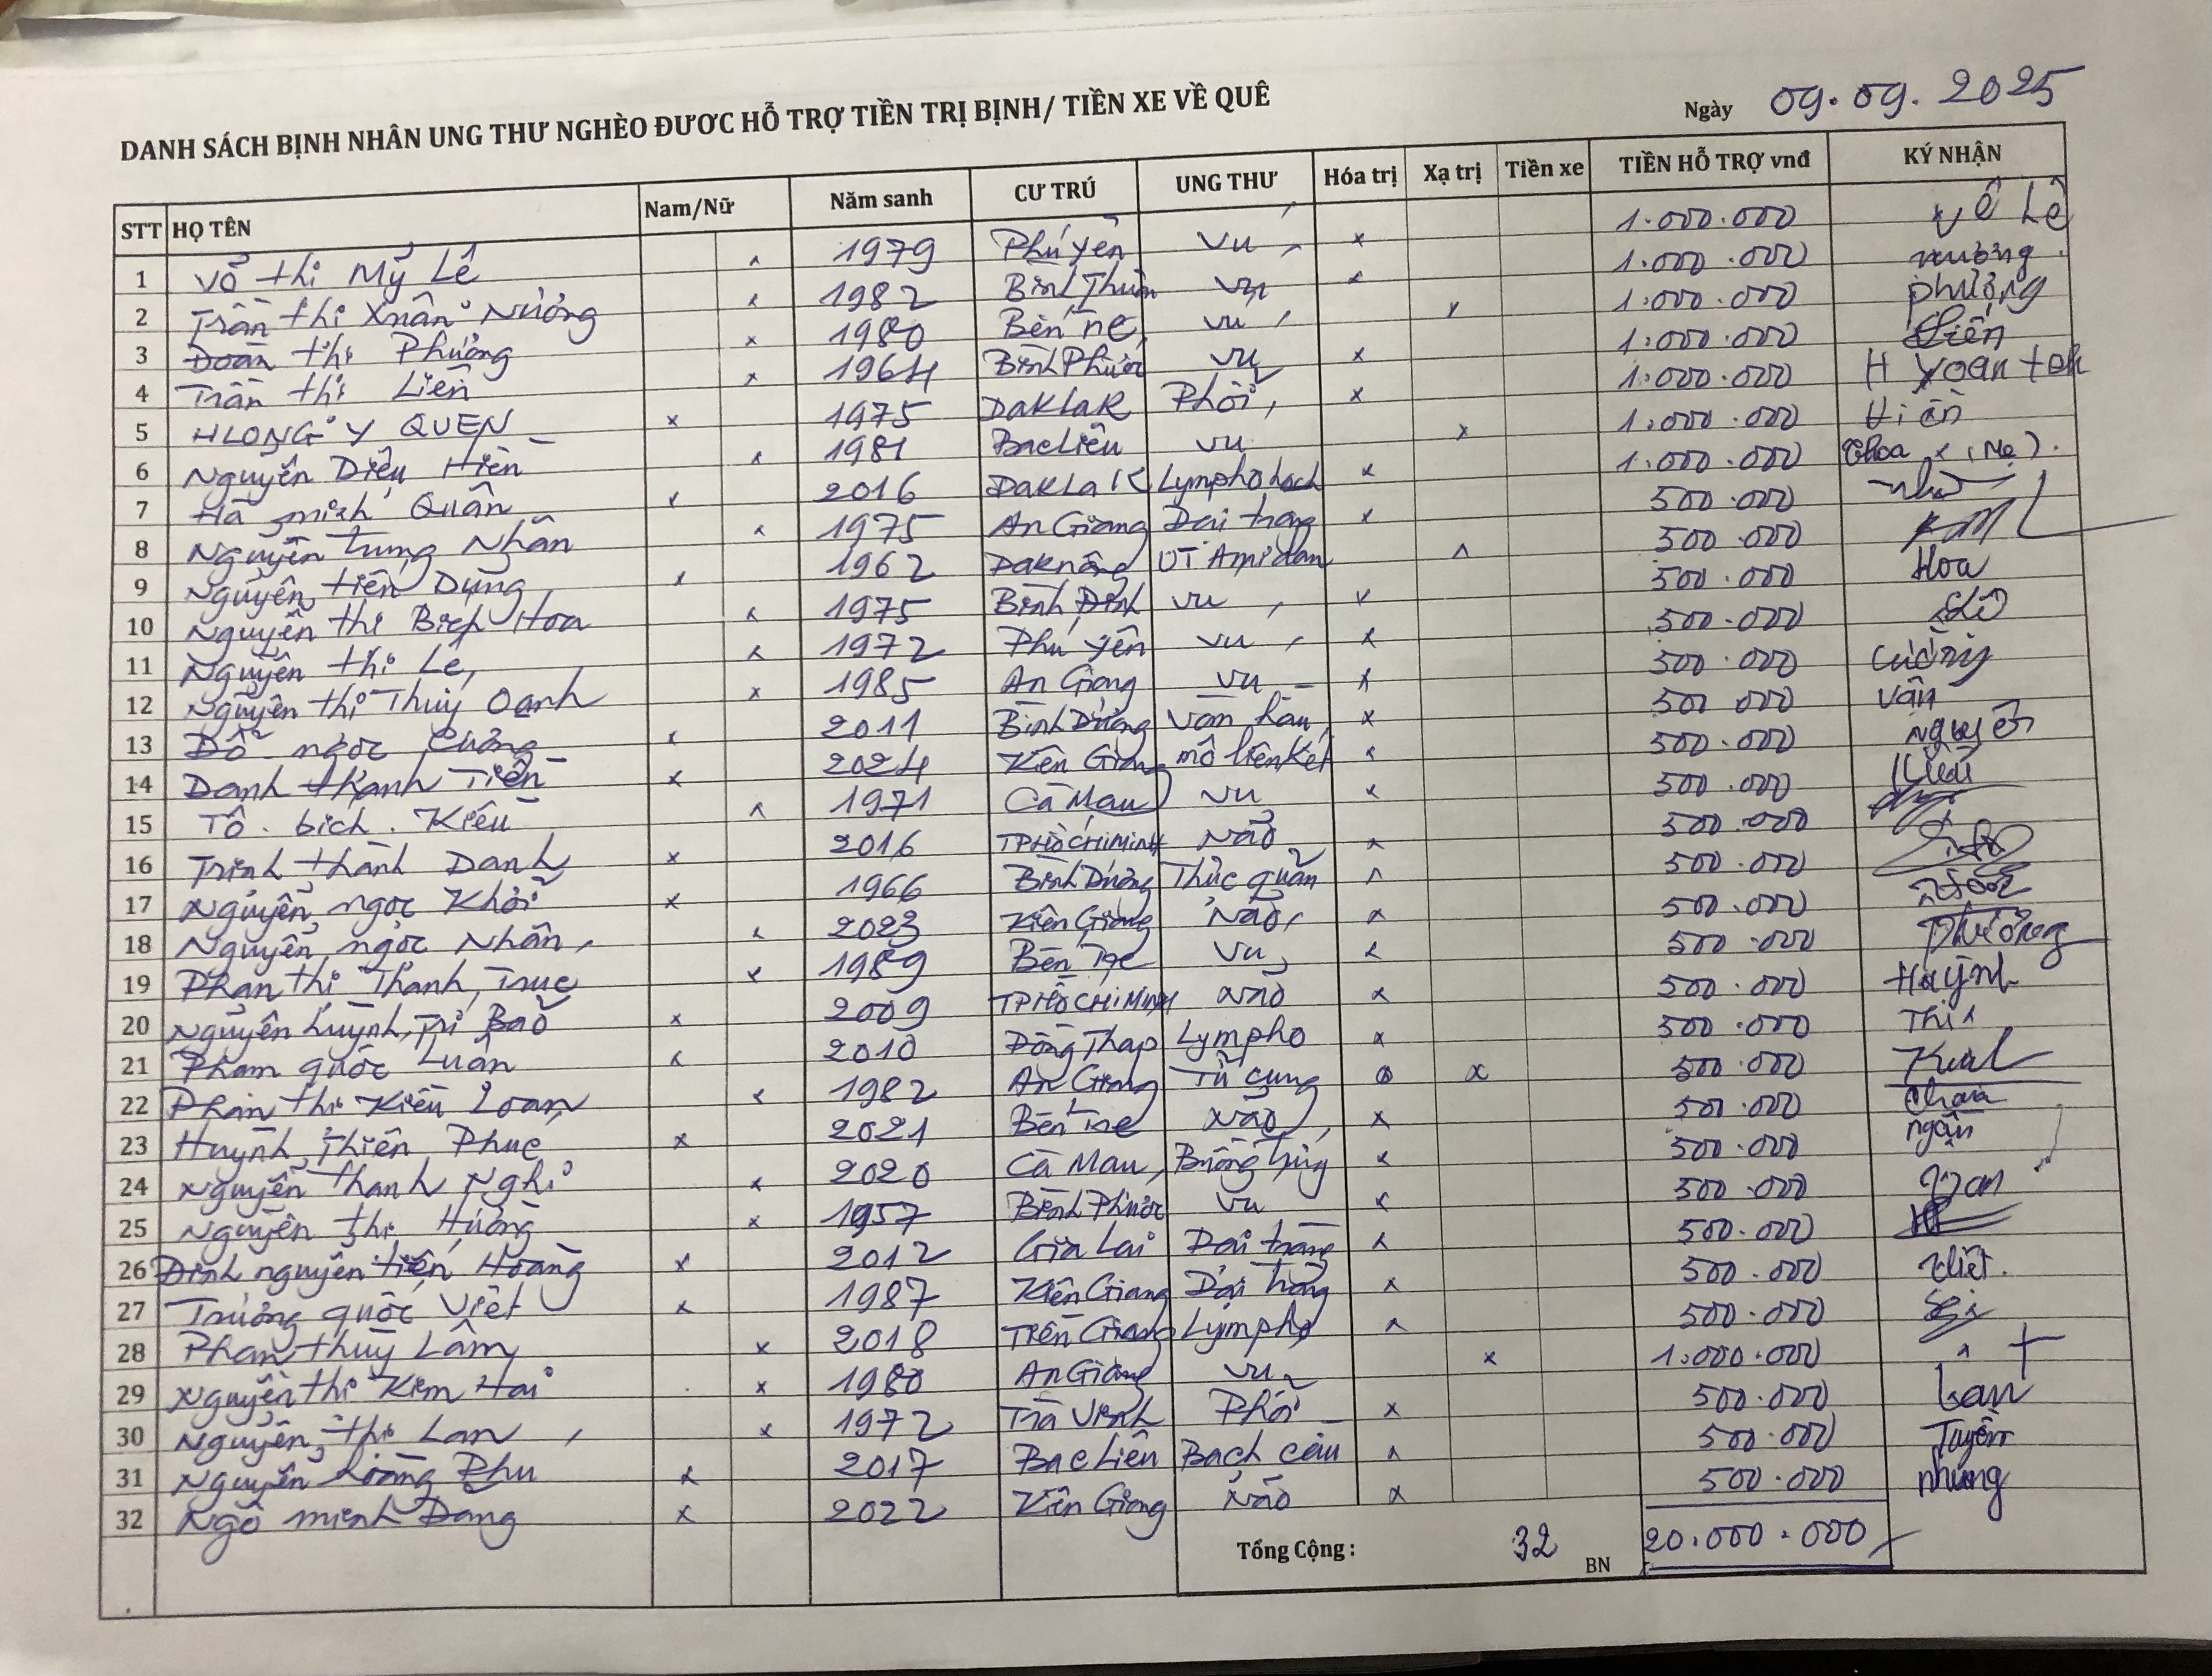 DANH SÁCH BỊNH NHÂN UNG THƯ NGHÈO ĐƯƠC HỖ TRỢ TIỀN TRỊ BỊNH/ TIỀN XE VỀ QUÊ
Ngày 09.09.2025
STT HỌ TÊN Nam/Nữ Năm sanh CƯ TRÚ UNG THƯ Hóa trị Xạ trị Tiền xe TIỀN HỖ TRỢ vnđ KÝ NHẬN
1 Võ thị Mỹ Lê x 1979 Phú Yên Vú x 1.000.000 Lê
2 Trần thị Xuân Nương x 1982 Bình Thuận Vú x 1.000.000 nương
3 Đoàn thị Phượng x 1980 Bến Tre Vú x 1.000.000 phượng
4 Trần thị Liên x 1964 Bình Phước Vú x 1.000.000 Liên
5 HLONG Y QUEN x 1975 DakLaK Phổi x 1.000.000 H Yoan
6 Nguyễn Diệu Hiền x 1981 Bạc Liêu Vú x 1.000.000 Hiền
7 Hà minh Quân x 2016 DakLaK Lympho hạch x 1.000.000 Thoa x (Mẹ).
8 Nguyễn Nhãn x 1975 An Giang Đại tràng x 500.000
9 Nguyễn tiến Dũng x 1962 Daknông UT Amidan x 500.000
10 Nguyễn thị Bích Hoa x 1975 Bình Định Vú x 500.000 Hoa
11 Nguyễn thị Lệ x 1972 Phú Yên Vú x 500.000
12 Nguyễn thị Thúy Oanh x 1985 An Giang Vú x 500.000 Cường
13 Đỗ ngọc Cường x 2011 Bình Dương Vòm hầu x 500.000 Vân
14 Danh thanh Tiền x 2024 Kiên Giang mô liên kết x 500.000 Nguyên
15 Tô bích Kiều x 1971 Cà Mau Vú x 500.000 Kiều
16 Trịnh thành Danh x 2016 TPHỒCHIMINH Não x 500.000
17 Nguyễn ngọc Khởi x 1966 Bình Dương Thực quản x 500.000
18 Nguyễn ngọc Nhân x 2023 Kiên Giang Não x 500.000
19 Phan thị Thanh Trúc x 1989 Bến Tre Vú x 500.000 Phương
20 Nguyễn huỳnh Trí Bảo x 2009 TPHỒCHIMINH Não x 500.000 Huỳnh
21 Phạm quốc Luân x 2010 Đồng Tháp Lympho x 500.000
22 Phan thị Kiều Loan x 1982 An Giang Tử cung x 500.000
23 Huỳnh Thiên Phúc x 2021 Bến Tre Não x 500.000
24 Nguyễn thanh Nghi x 2020 Cà Mau Buồng trứng x 500.000 ngân
25 Nguyễn thị Hường x 1957 Bình Phước Vú x 500.000
26 Đinh nguyễn tiến Hoàng x 2012 Gia Lai Đại tràng x 500.000
27 Trương quốc Việt x 1987 Kiên Giang Đại tràng x 500.000 Việt.
28 Phan thùy Lâm x 2018 Tiền Giang Lympho x 500.000
29 Nguyễn thị Kim Hai x 1980 An Giang Vú x 1.000.000
30 Nguyễn thị Lan x 1972 Trà Vinh Phổi x 500.000 Lan
31 Nguyễn hoàng Phu x 2017 Bạc Liêu Bạch cầu x 500.000 Tuyền
32 Ngô minh Đang x 2022 Kiên Giang Não x 500.000 nhung
Tổng Cộng : 32 BN 20.000.000